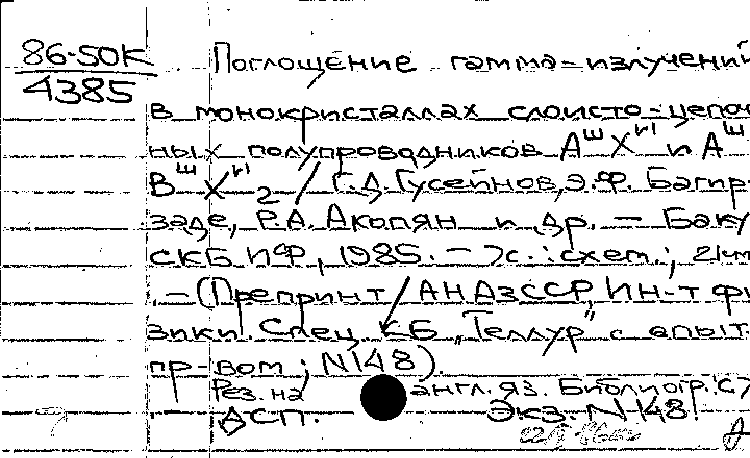 86-50К
4385
Поглощение гамма-излучений
в монокристаллах слоисто-цепоч
ных полупроводников AᴵᴵᴵXⱽᴵ и Aᴵᴵᴵ
BᴵᴵᴵXⱽᴵ₂ / Г.Д. Гусейнов, Э.Ф. Багир-
заде, Р.А. Акопян и др. – Баку
СКБ ИФ, 1985. – 7с. : схем.; 21см
. – (Препринт / АН АзССР, Ин-т фи
зики. Спец. КБ „Теллур" с опыт.
пр-вом ; N148).
Рез. на англ. яз. Библиогр.: с7
ДСП. Экз. N 148